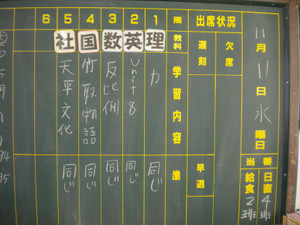 11月11日水曜日
当番
日直4班
給食2班
出席状況
欠席
遅刻
早退
限 教科 学習内容 進
1 理 力 同じ
2 英 Unit 8 同じ
3 数 反比例 同じ
4 国 竹取物語 同じ
5 社 天平文化 同じ
6